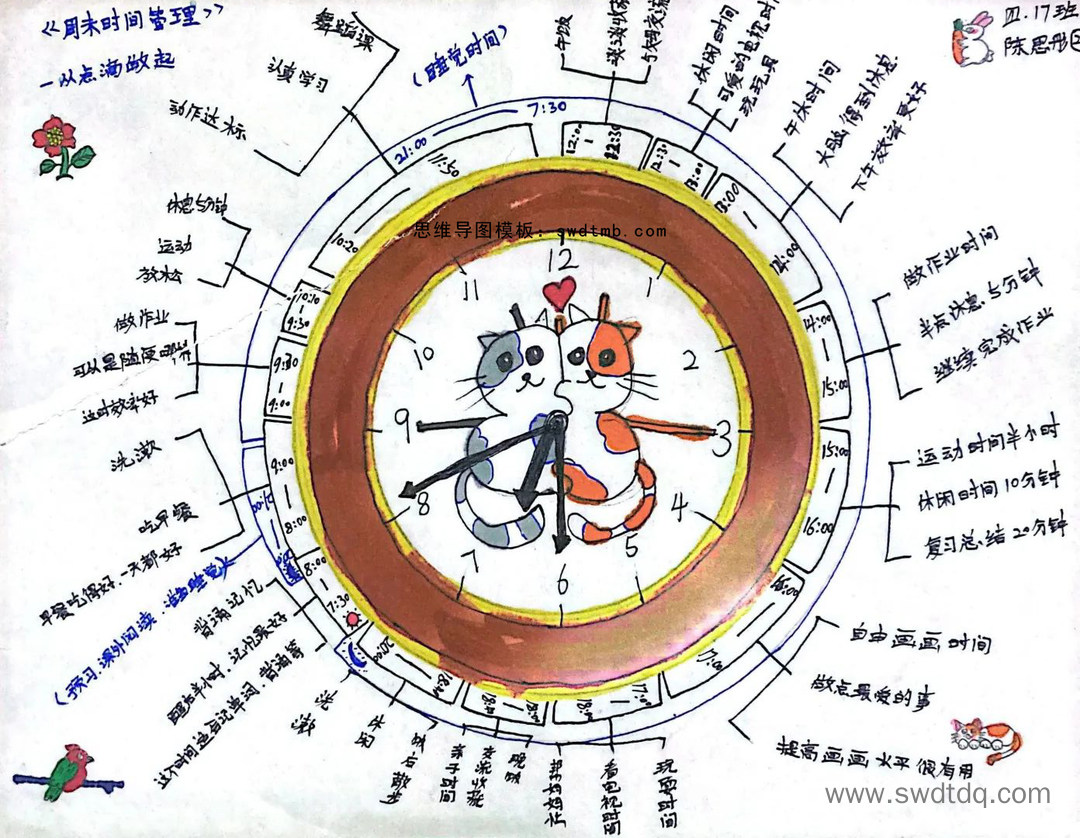 《周末时间管理》
—从点滴做起
四.17班
陈思彤
舞蹈课
认真学习
动作达标
(睡觉时间)
午饭
休闲时间
可爱的电视时间
玩玩具
午休时间
大脑得到休息
下午效率更好
做作业时间
半点休息5分钟
继续完成作业
运动时间半小时
休闲时间10分钟
复习总结20分钟
自由画画时间
做点最爱的事
提高画画水平很有用
玩耍时间
看电视时间
晚饭
亲子时间
饭后散步
休闲
洗漱
背诵记忆
醒后半小时,记忆最好
(预习.课外阅读.准备睡觉)
洗漱
吃早餐
早餐吃得好,一天都好
做作业
可以是随便哪样
这时效率好
休息5分钟
运动
放松
21:00
7:30
11:50
10:20
12:00
12:30
12:30
13:00
13:00
14:00
14:00
15:00
15:00
16:00
16:00
17:00
17:00
18:00
7:30
8:00
8:00
9:00
9:00
9:30
9:30
10:10
思维导图模板: swdtmb.com
12
1
2
3
4
5
6
7
8
9
10
11
www.swdtdq.com